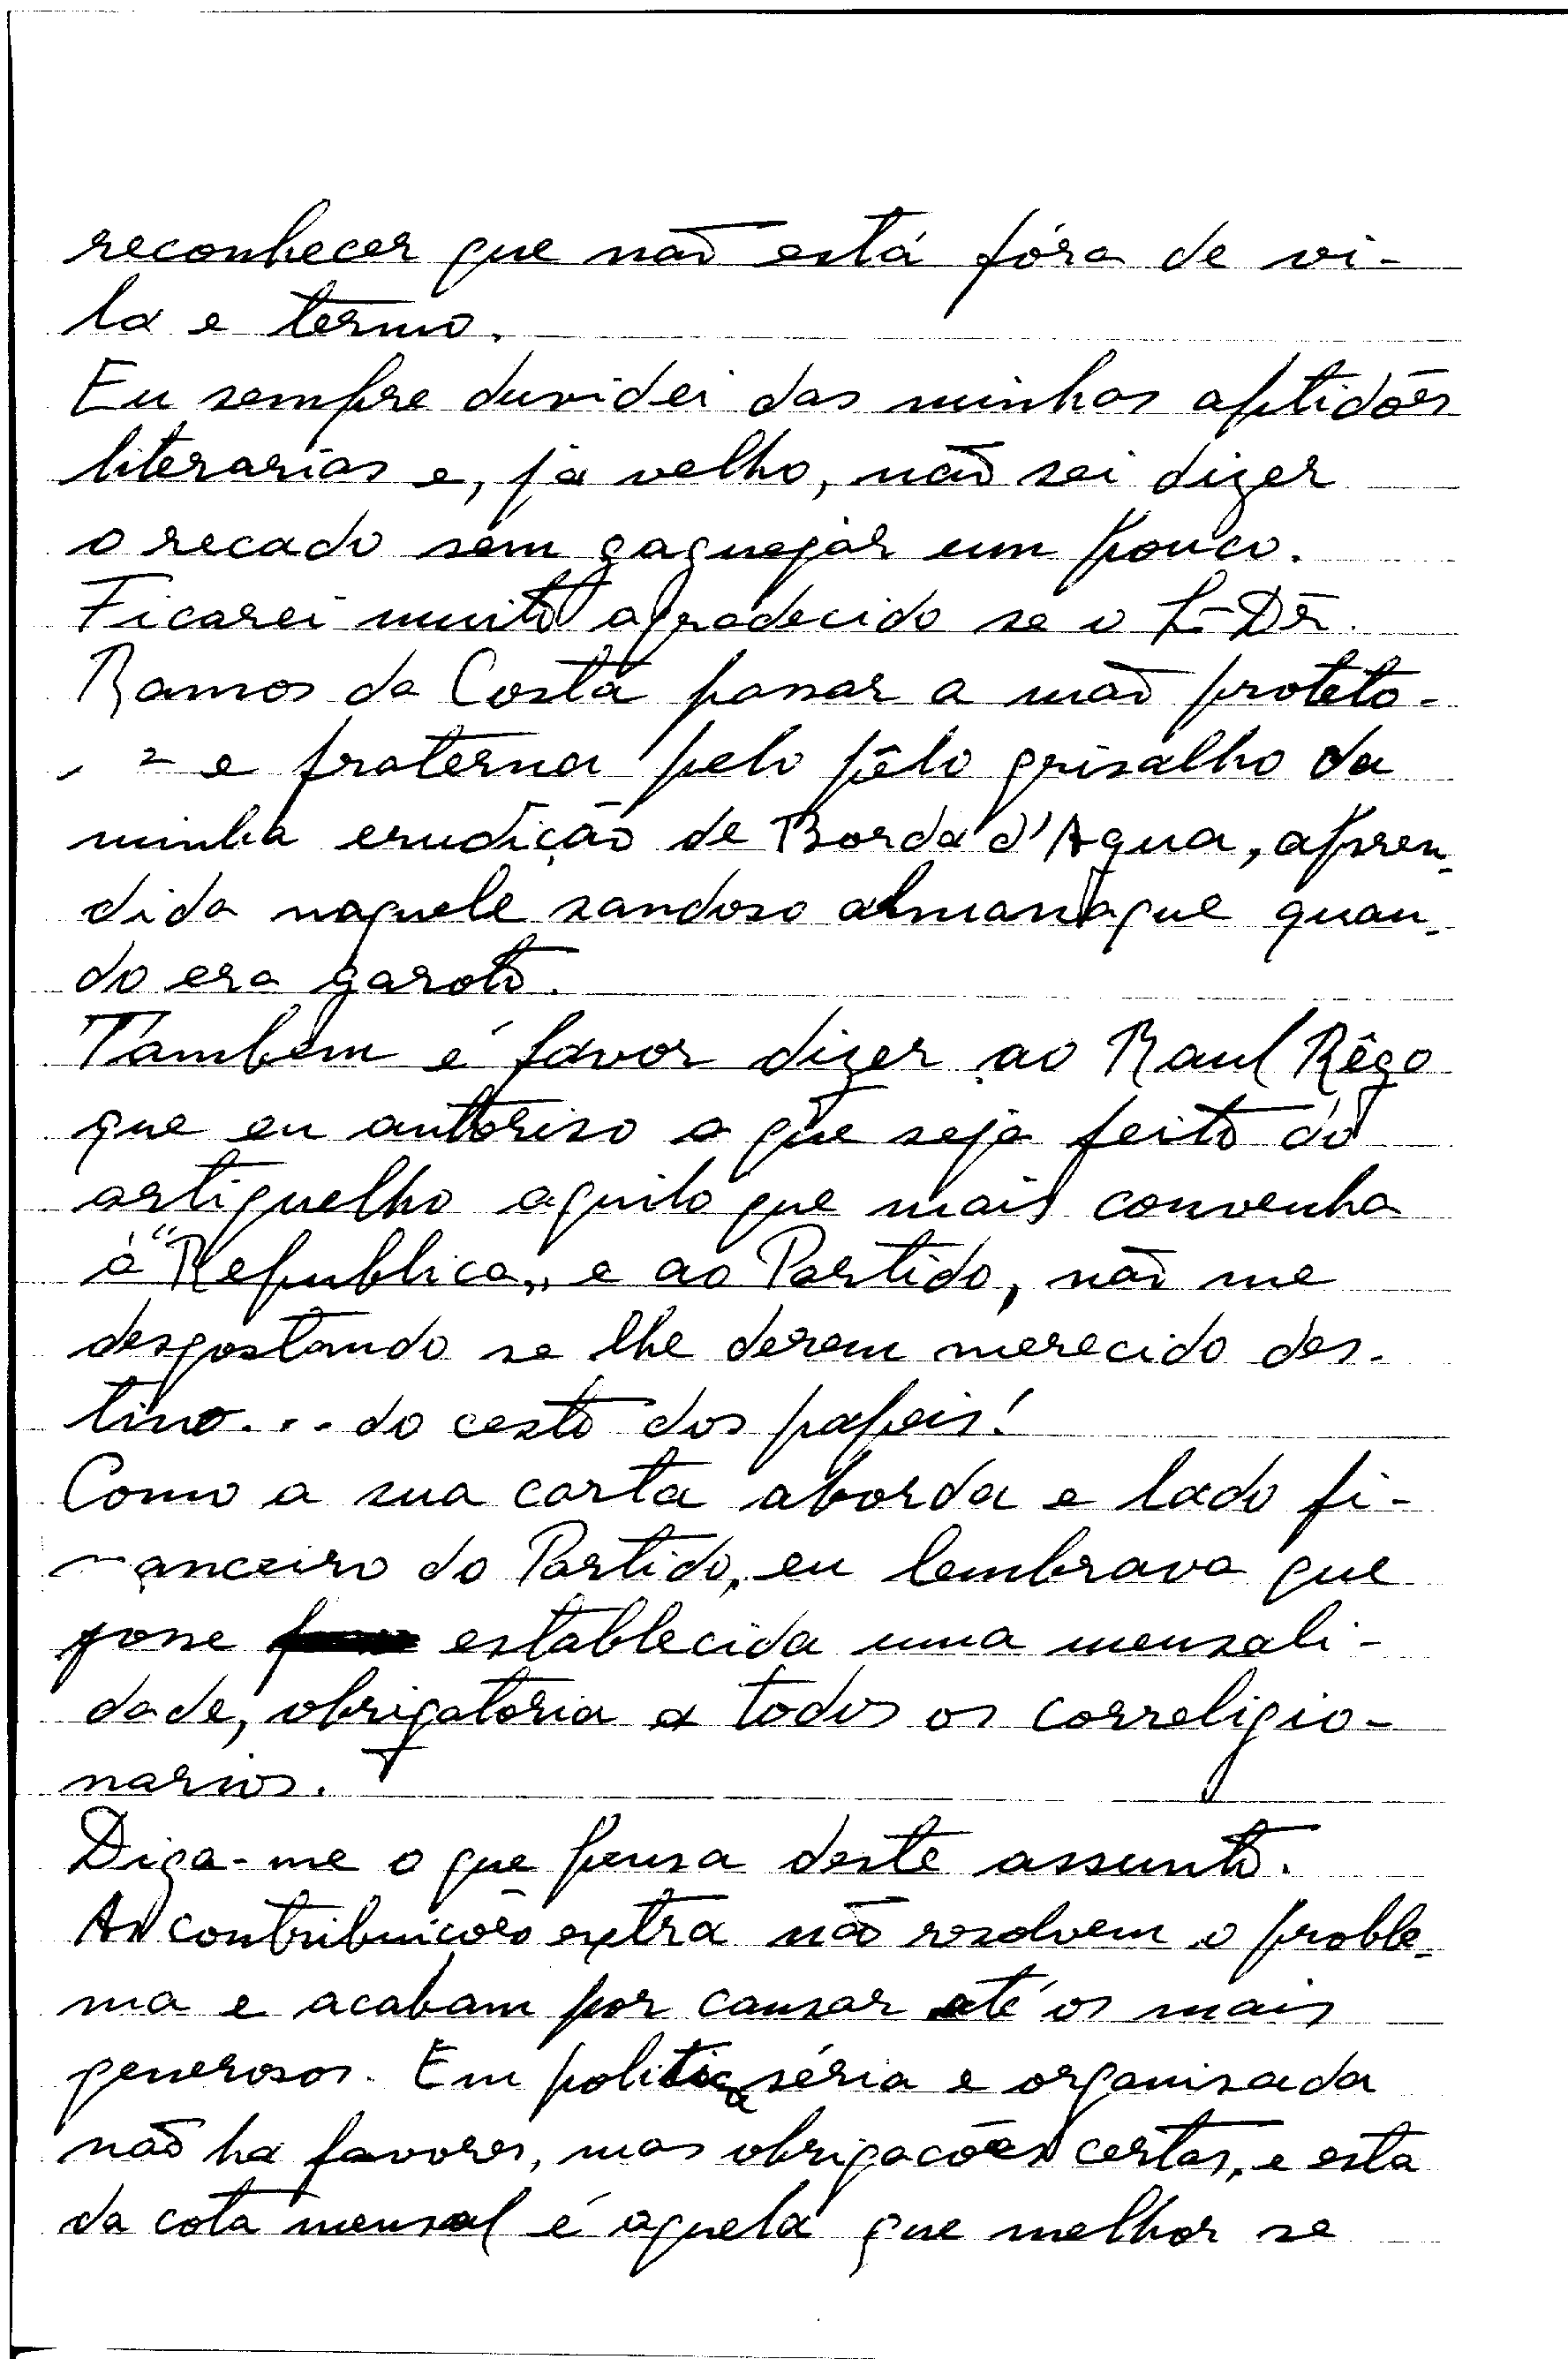 reconhecer que não está fóra de vi-
la e termo.
Eu sempre duvidei das minhas aptidões
literarias e, já velho, não sei dizer
o recado sem gaguejar um pouco.
Ficarei muito agradecido se o Dr.
Ramos da Costa passar a mão proteto-
e fraterna pelo pêlo grisalho da
minha erudição de Borda d'Agua, apren-
dida naquele saudoso almanaque quan-
do era garoto.
Tambem é favor dizer ao Raul Rêgo
que eu autoriso a que seja feito do
artiguelho aquilo que mais convenha
à "Republica" e ao Partido, não me
desgostando se lhe derem merecido des-
tino... do cesto dos papeis!
Como a sua carta aborda o lado fi-
nanceiro do Partido, eu lembrava que
fosse establecida uma mensali-
dade, obrigatoria a todos os correligio-
narios.
Diga-me o que pensa deste assunto.
As contribuicões extra não resolvem o proble-
ma e acabam por cansar até os mais
generosos. Em politica séria e organisada
não ha favores, mas obrigacões certas, e esta
da cota mensal é aquela que melhor se